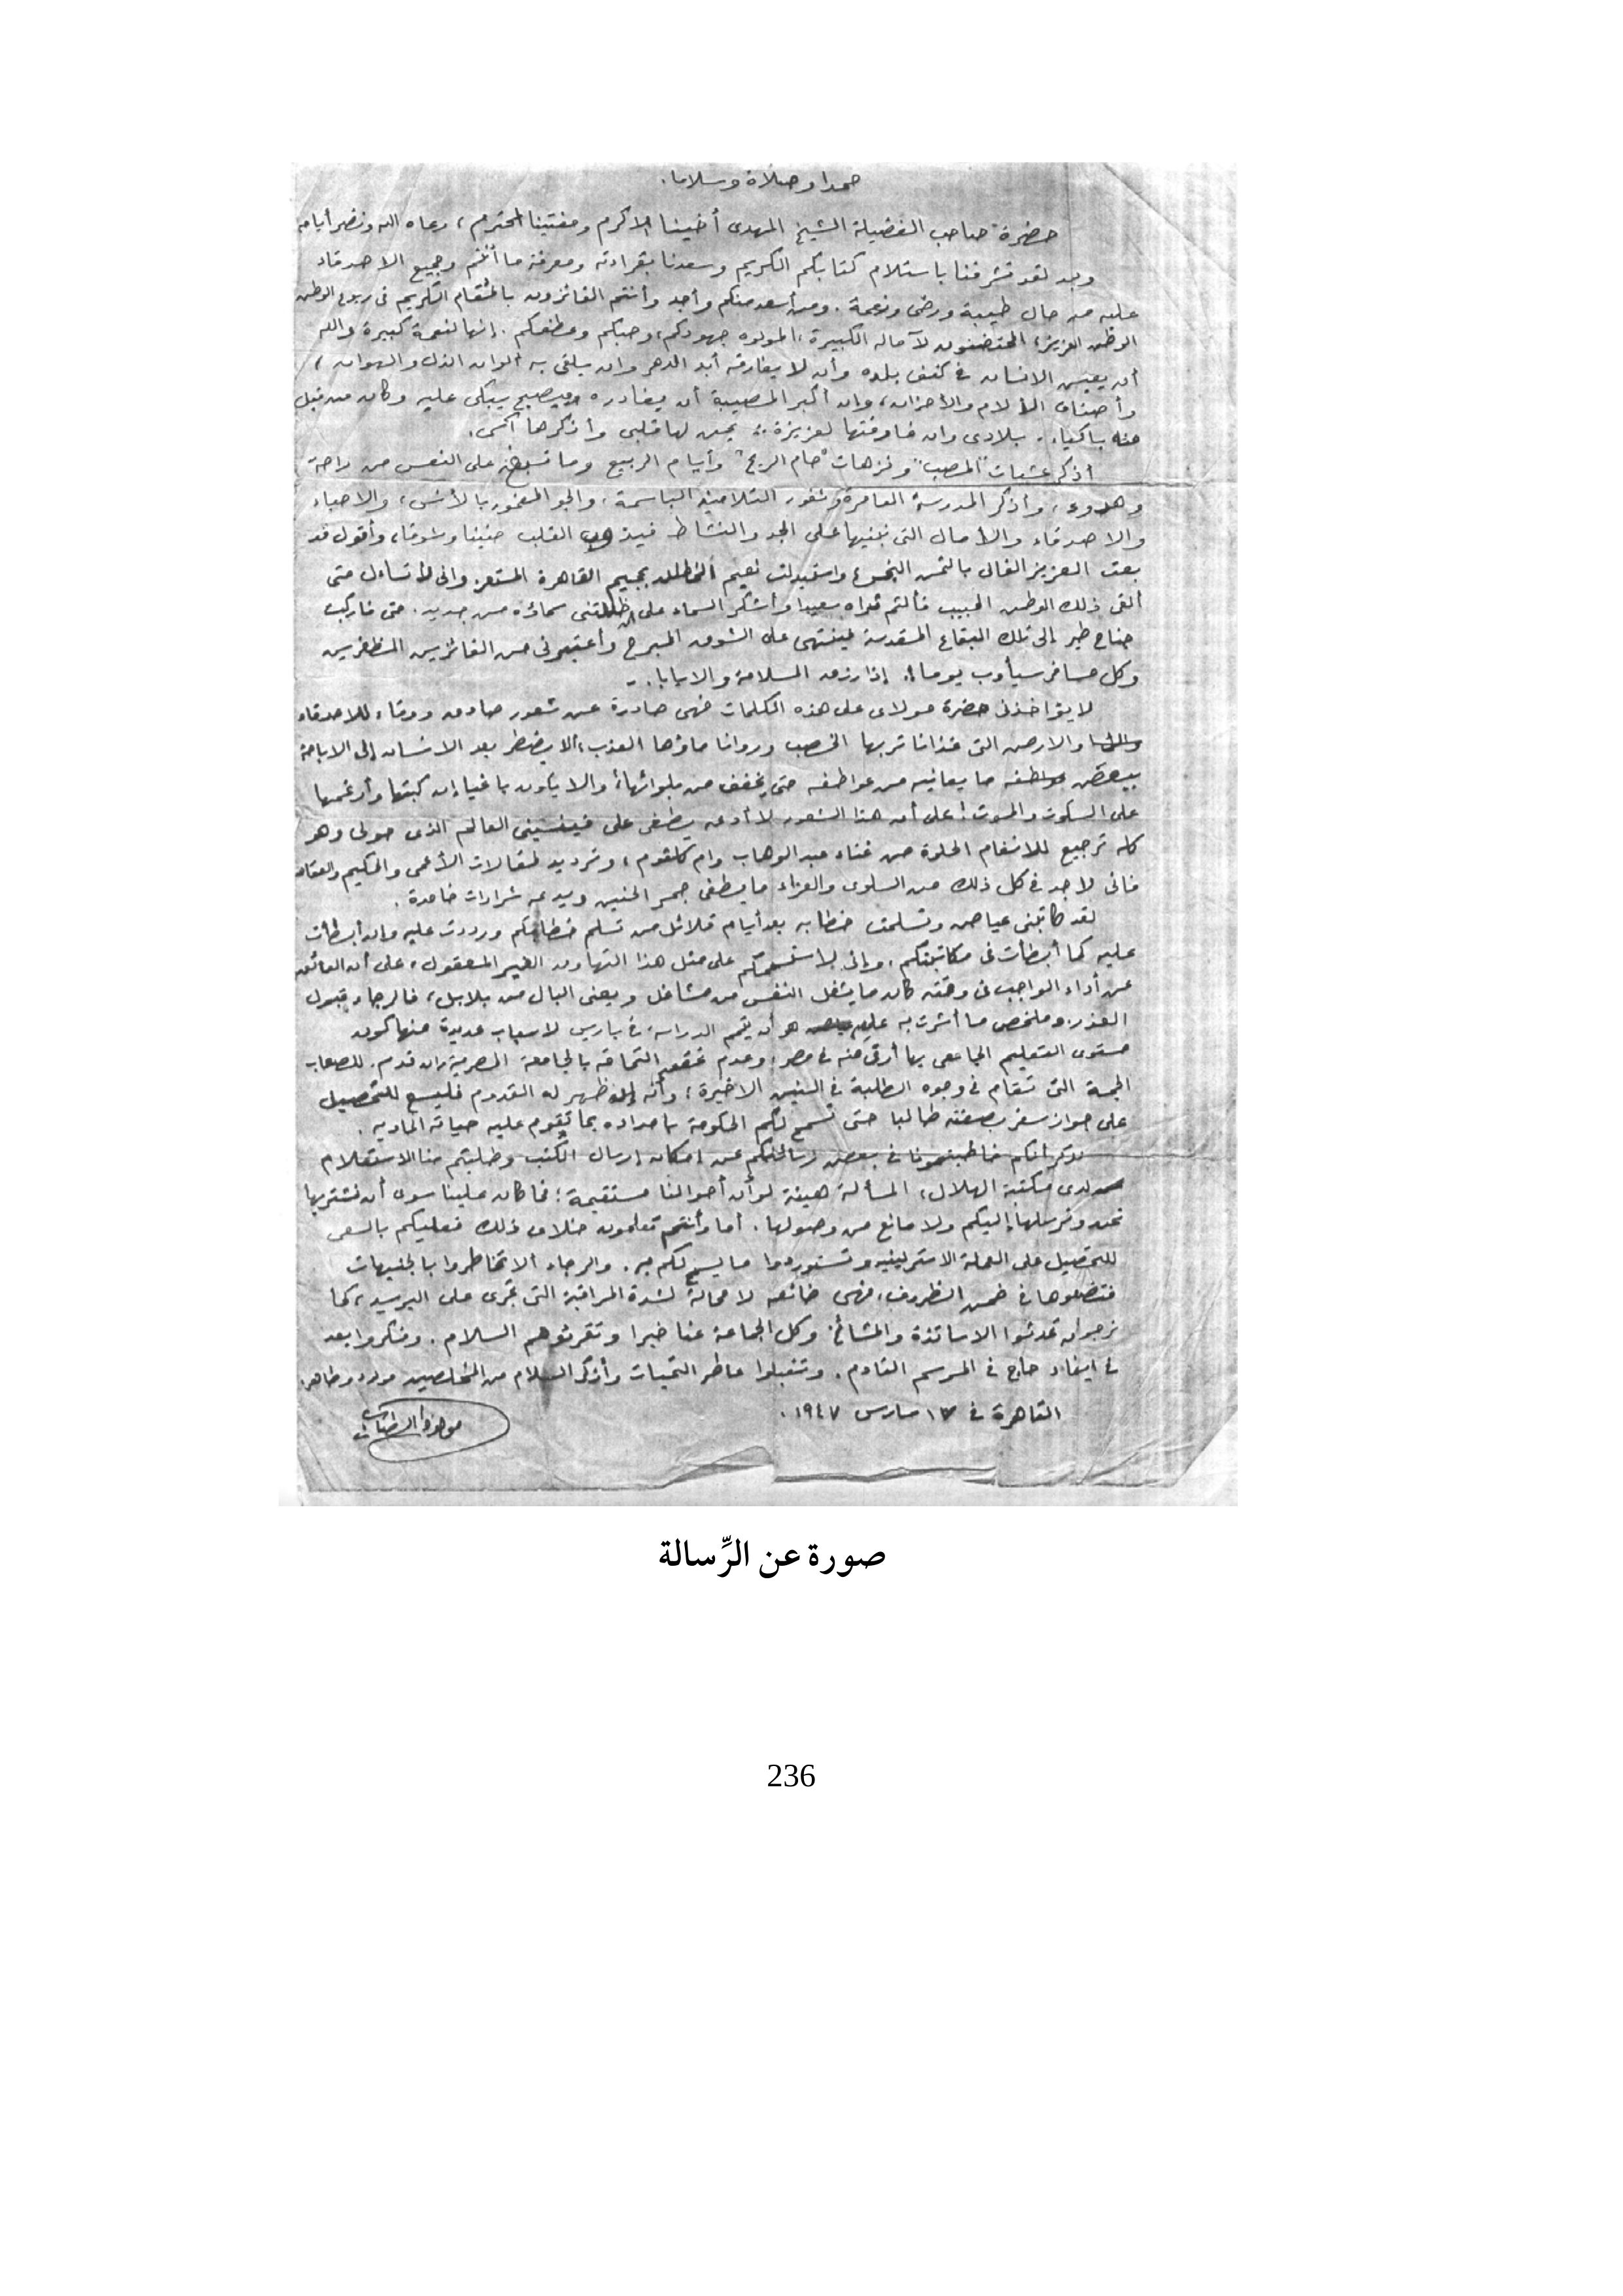 حمدا وصلاة وسلاما.
حضرة صاحب الفضيلة الشيخ المهدى أخينا الاكرم ومفتينا المحترم، رعاه الله ونضر أيامه
وبعد لقد تشرفنا باستلام كتابكم الكريم وسعدنا بقراءته ومعرفة ما أنتم وجميع الاصدقاء
عليه من حال طيبة ورضى ونعمة. ومن أسعد منكم وأجد وأنتم الفائزون بالمقام الكريم فى ربوع الوطن
الوطن العزيز، المحتضنون لآماله الكبيرة، المولوه جهودكم، وحبكم وعطفكم. إنها لنعمة كبيرة والله
أن يعيش الانسان فى كنف بلده وأن لا يفارقه أبد الدهر وان يلقى به ألوان الذل والهوان،
وأصناف الآلام والأحزان، وإن أكبر المصيبة أن يغادره ويصبح يبكى عليه وكان من قبل
منه باكياء. بلادى وان فارقتها لعزيزة: يحن لها قلبى وأذكرها
أذكر عشيات "المصب" ونزهات "حام الريح" وأيام الربيع وما على النفس من راحة
وهدوء، وأذكر المدرسة العامرة وثغور التلاميذ الباسمة، والجو المغمور بالأنس، والاحباء
والاصدقاء والآمال التى نبنيها على الجد والنشاط فيذهب القلب حنينا وشوقا، وأقول قد
بعت العزيز الغالى بالثمن البخس، واستبدلت نعيم بجحيم القاهرة المستعر. وانى لأتساءل متى
ألقى ذلك الوطن الحبيب فألثم ثراه سعيدا وأشكر السماء على ان ظللتنى سماؤه من جديد. متى فاركب
جناح طير إلى تلك البقاع المقدسة لينتهى على الشوق المبرح وأعتبرنى من الفائزين المظفرين
وكل مسافر سيأوب يوما: إذا رزق السلامة والايابا. -
لا يؤاخذنى حضرة مولاى على هذه الكلمات فهى صادرة عن شعور صادق ووفاء للاصدقاء
والارض التى غذانا تربها الخصب وروانا ماؤها العذب، ألا يضطر بعد الانسان إلى الاباحة
ببعض ما يعانيه من عواطفه حتى يخفف من بلوائها، والا يكون باغيا إن كبتها وأرغمها
على السكوت والموت! على أن هذا الشعور لا أدعه يطغى على فينسينى العالم الذى حولى وهو
كله ترجيع للانغام الحلوة من غناء عبد الوهاب وام كلثوم، وترديد لمقالات الأعمى والحكيم والعقاد
فانى لاجد فى كل ذلك من السلوى والعزاء ما يطفى جمر الحنين ويدعه شرارات خامدة.
لقد كاتبنى عياض وتسلمت خطابه بعد أيام قلائل من تسلم خطابكم ورددت عليه وان أبطأت
عليه كما أبطأت فى مكاتبتكم، وإنى لاستسمحكم على مثل هذا التهاون الغير المعقول، على أن العائق
عن أداء الواجب فى وقته كان ما يشغل النفس من مشاغل ويعنى البال من بلابل، فالرجاء قبول
العذر. وملخص ما أشرت به على هو أن يتم الدراسة فى باريس لاسباب عديدة منها كون
مستوى التعليم الجامعى بها أرقى منه فى مصر، وعدم تحقق التحاقه بالجامعة المصرية إن قدم. للصعاب
الجمة التى تقام فى وجوه الطلبة فى السنين الاخيرة، وأنه إن ظهر له القدوم فليسع للتحصيل
على جواز سفر بصفته طالبا حتى تسمح لكم الحكومة بامداده بما تقوم عليه حياته الماديه.
نذكر أنكم خاطبتمونا فى بعض رسائلكم عن إمكان إرسال الكتب وطلبتم منا الاستعلام
لدى مكتبة الهلال، المسألة هينة لو أن أحوالنا مستقيمة؛ فما كان علينا سوى أن نشتريها
نحن ونرسلها إليكم ولا مانع من وصولها. أما وأنتم تعلمون خلاف ذلك فعليكم بالسعى
للتحصيل على العملة الاسترلينيه وتستوردوا ما يسمح لكم به. والرجاء ألا تخاطروا بالجنيهات
فتضعوها فى ضمن الظروف، فهى ضائعه لا محالة لشدة المراقبة التى تجرى على البريد، كما
نرجو أن تحدثوا الاساتذة والمشائخ وكل الجماعة عنا خيرا وتقرئوهم السلام. وفكروا بعد
فى ايفاد حاج فى الموسم القادم. وتقبلوا عاطر التحيات وأزكى السلام من المخلصين مولود وطاهر.
القاهرة فى ١٧ مارس ١٩٤٧.
صورة عن الرِّسالة
236